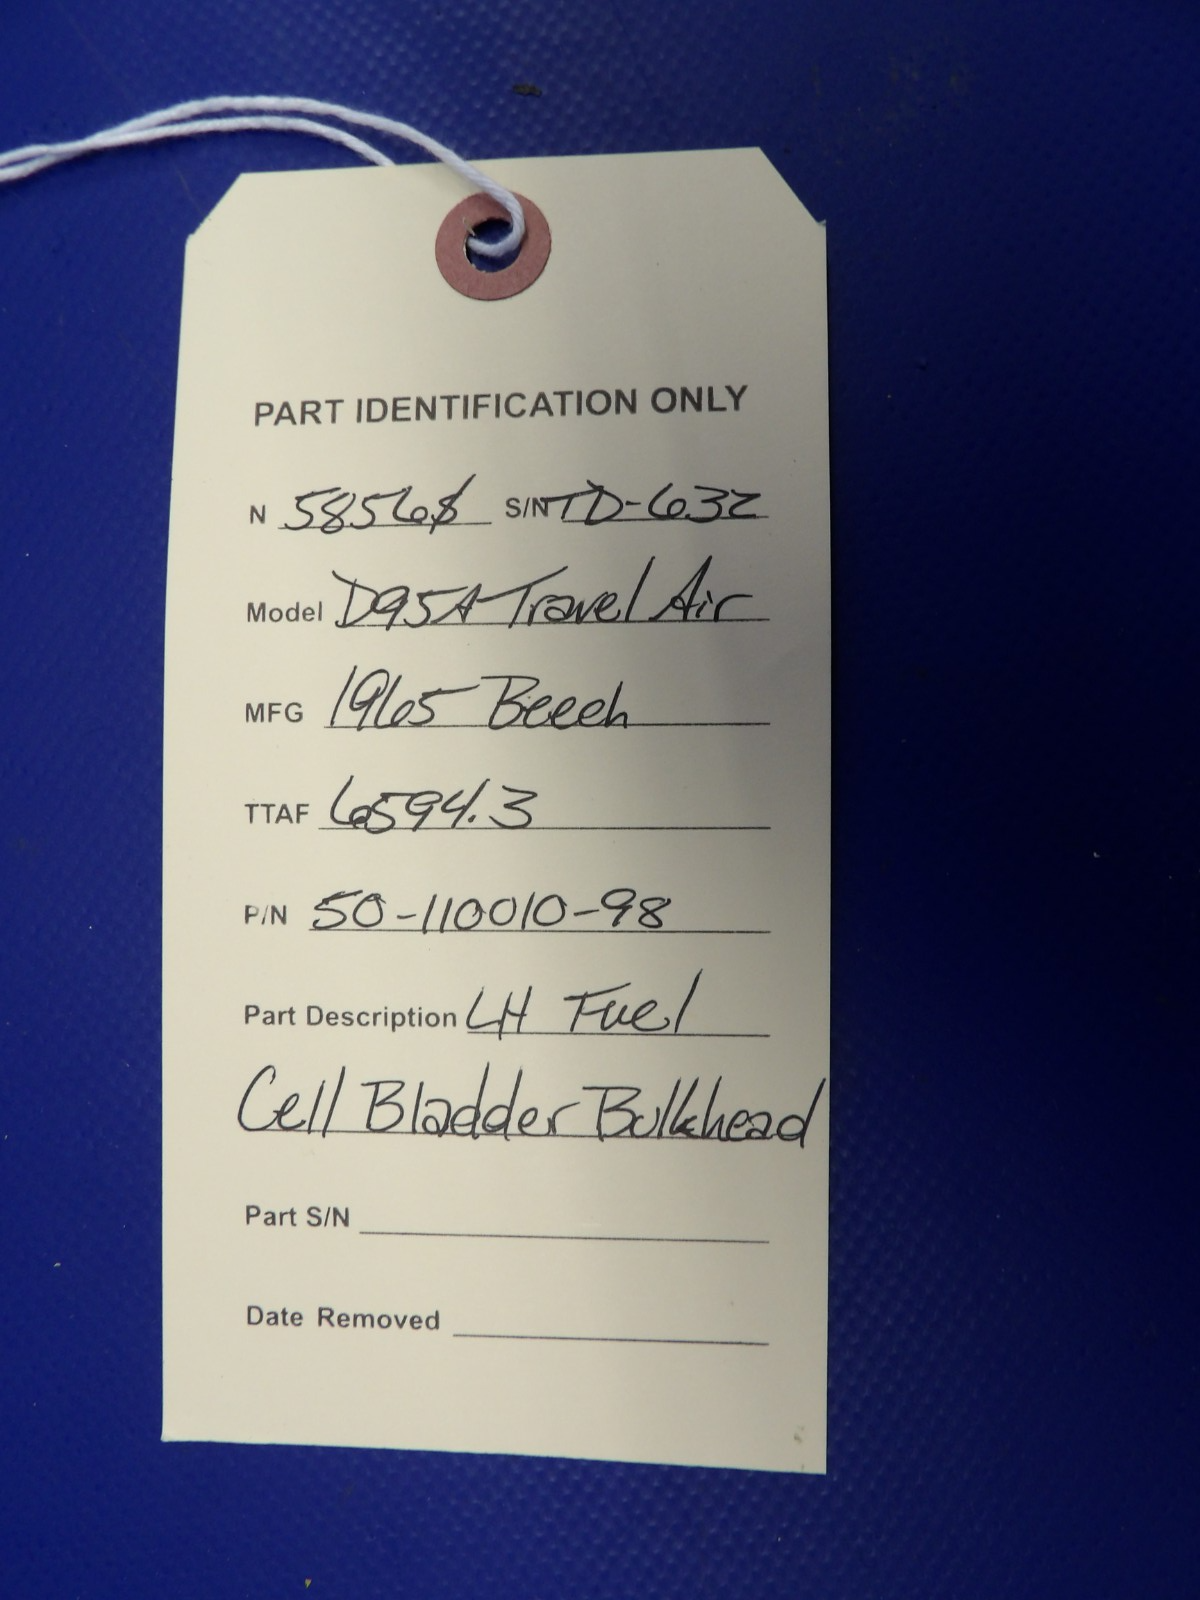 PART IDENTIFICATION ONLY
N 5856S S/N TD-632
Model D95A Travel Air
MFG 1965 Beech
TTAF 6594.3
P/N 50-110010-98
Part Description LH Fuel
Cell Bladder Bulkhead
Part S/N
Date Removed